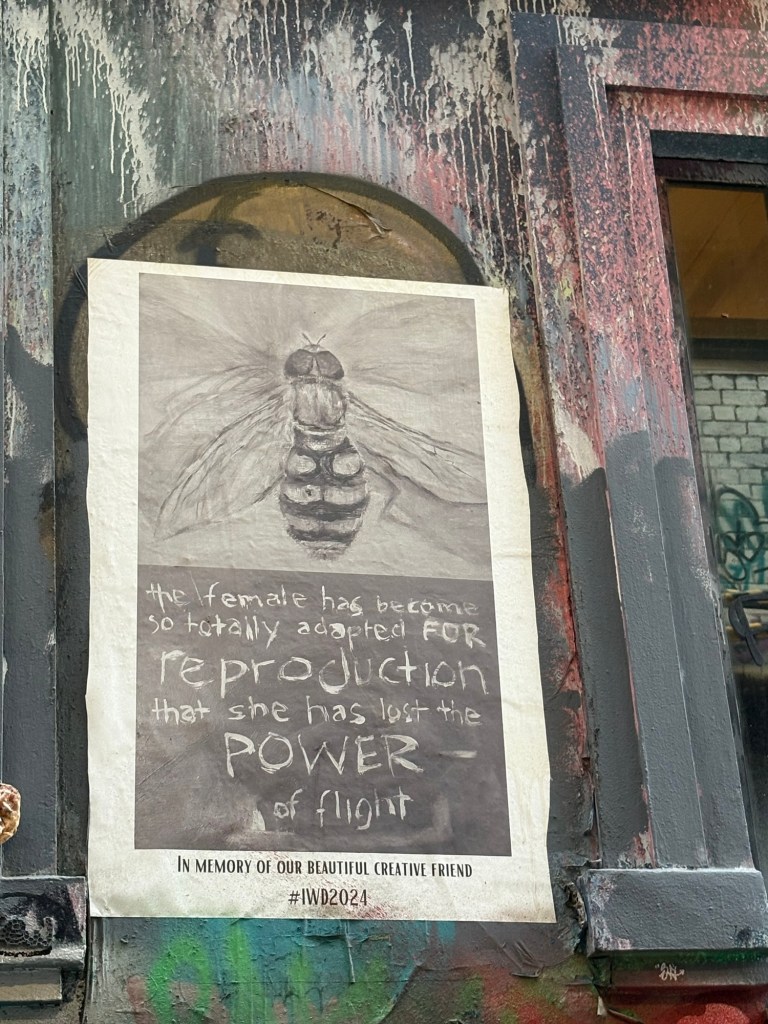 the female has become
so totally adapted FOR
reproduction
that she has lost the
POWER —
of flight
IN MEMORY OF OUR BEAUTIFUL CREATIVE FRIEND
#IWD2024